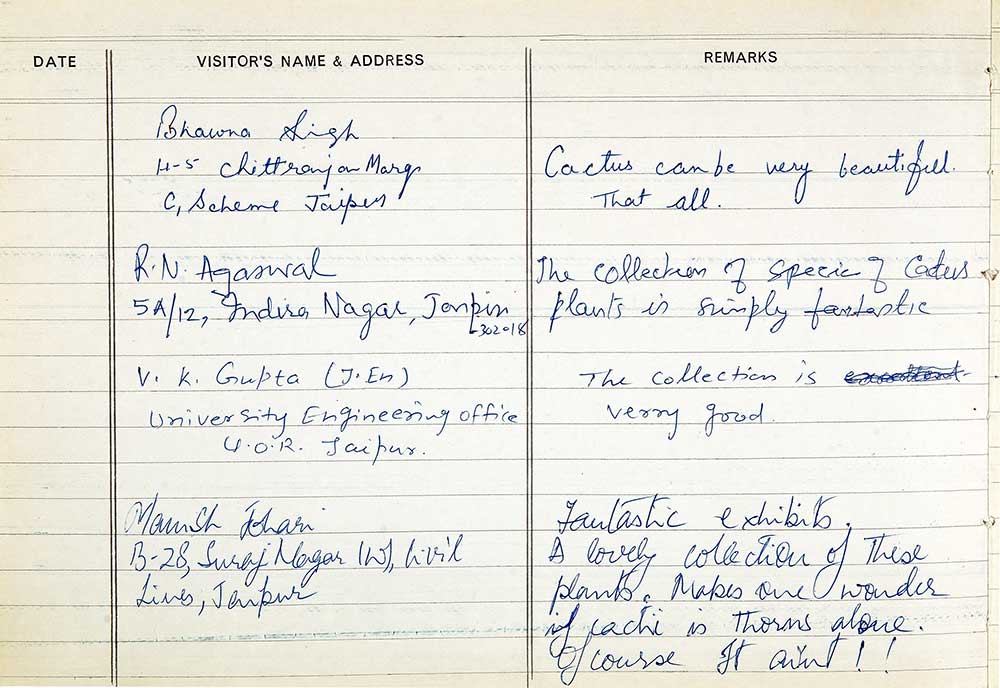 DATE VISITOR'S NAME & ADDRESS REMARKS
Bhawna Singh
H-5 Chittranjan Marg
C, Scheme Jaipur
Cactus can be very beautifull.
That all.
R.N. Agarwal
5A/12, Indira Nagar, Jaipur
-302018
The collection of specie of Cactus
plants is simply fantastic
V. K. Gupta (J.En)
University Engineering office
U.O.R. Jaipur.
The collection is
verry good.
Manish Johari
B-28, Suraj Nagar (W), Civil
Lines, Jaipur
Fantastic exhibits.
A lovely collection of These
plants. Makes one wonder
if cacti is Thorns alone.
Of course It aint!!